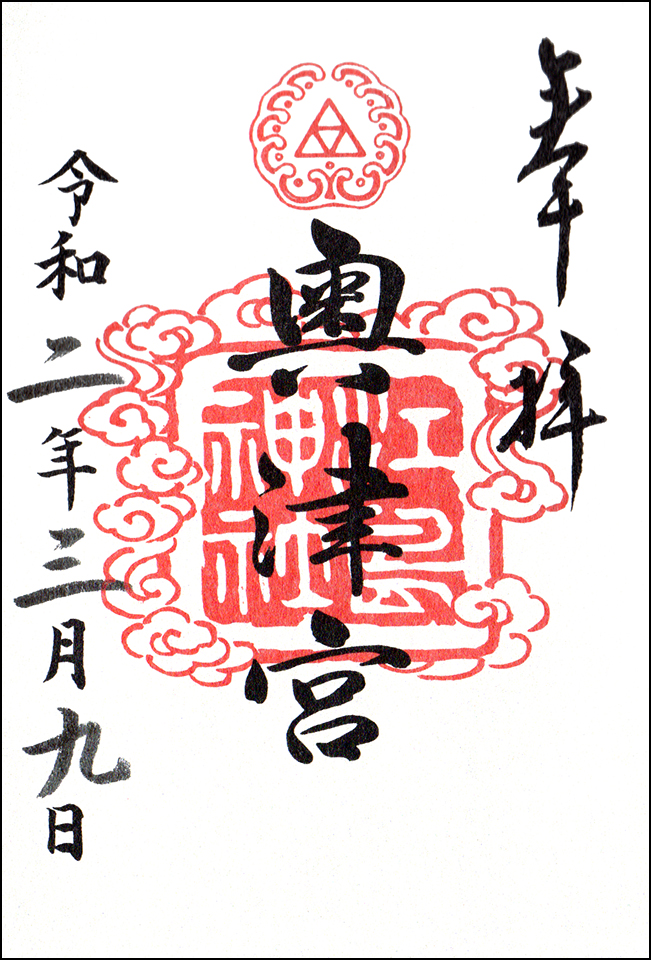 奉拝
奥津宮
江島神社
令和二年三月九日